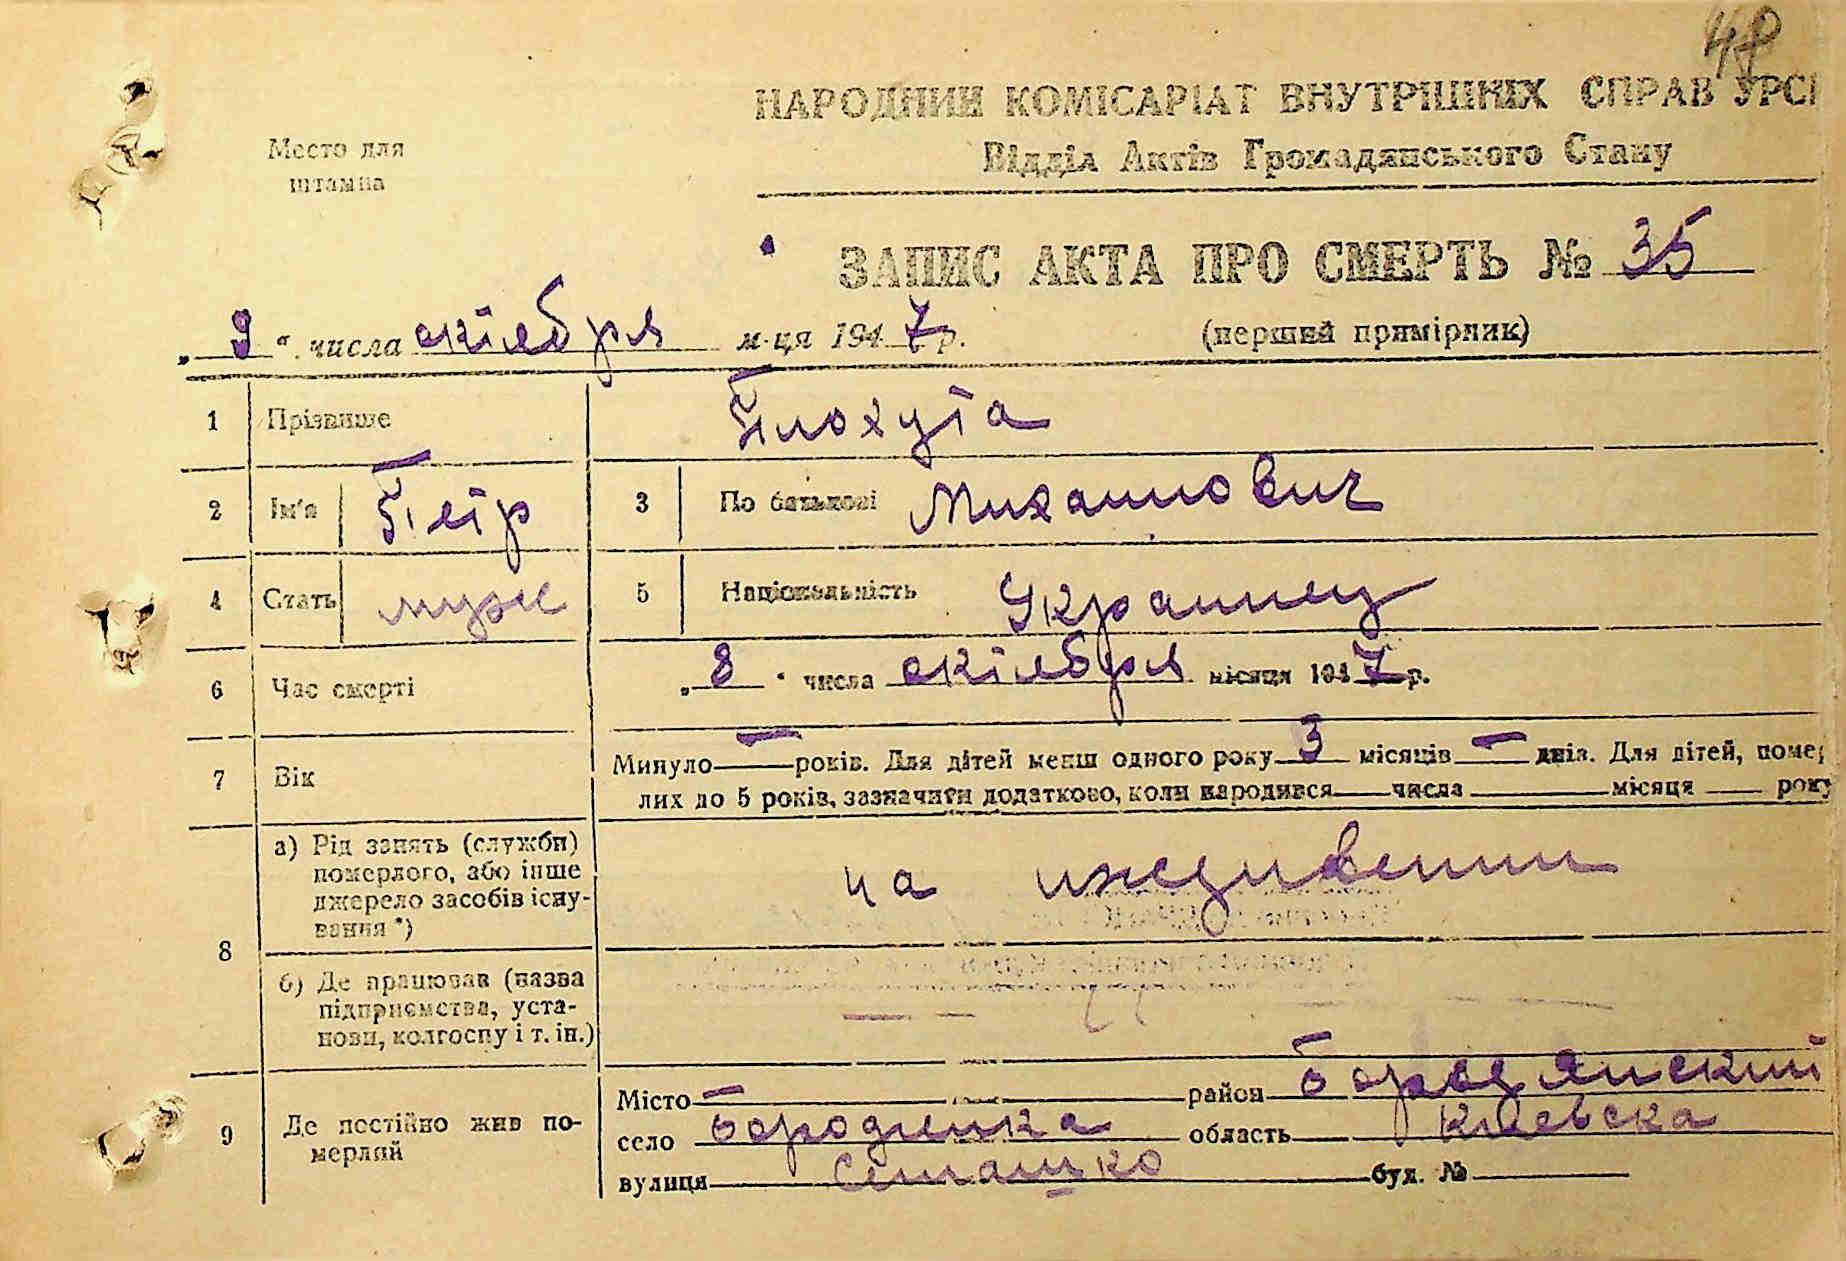 48
НАРОДНИЙ КОМІСАРІАТ ВНУТРІШНІХ СПРАВ УРСР
Место для
штампа
Відділ Актів Громадянського Стану
ЗАПИС АКТА ПРО СМЕРТЬ № 35
„ 9 “ числа октября м-ця 1947 р. (перший примірник)
1 Прізвище Плохута
2 Ім'я Петр 3 По батькові Михайлович
4 Стать муж 5 Національність Украинец
6 Час смерті „ 8 “ числа октября місяця 1947 р.
7 Вік Минуло — років. Для дітей менш одного року 3 місяців — днів. Для дітей, помер-
лих до 5 років, зазначити додатково, коли народився числа місяця року
8 а) Рід занять (служби)
померлого, або інше
джерело засобів існу-
вання *)
на иждивении
б) Де працював (назва
підприємства, уста-
нови, колгоспу і т. ін.)
— —
9 Де постійно жив по-
мерлий
Місто район Бородянский
село Бородянка область Киевска
вулиця буд. №